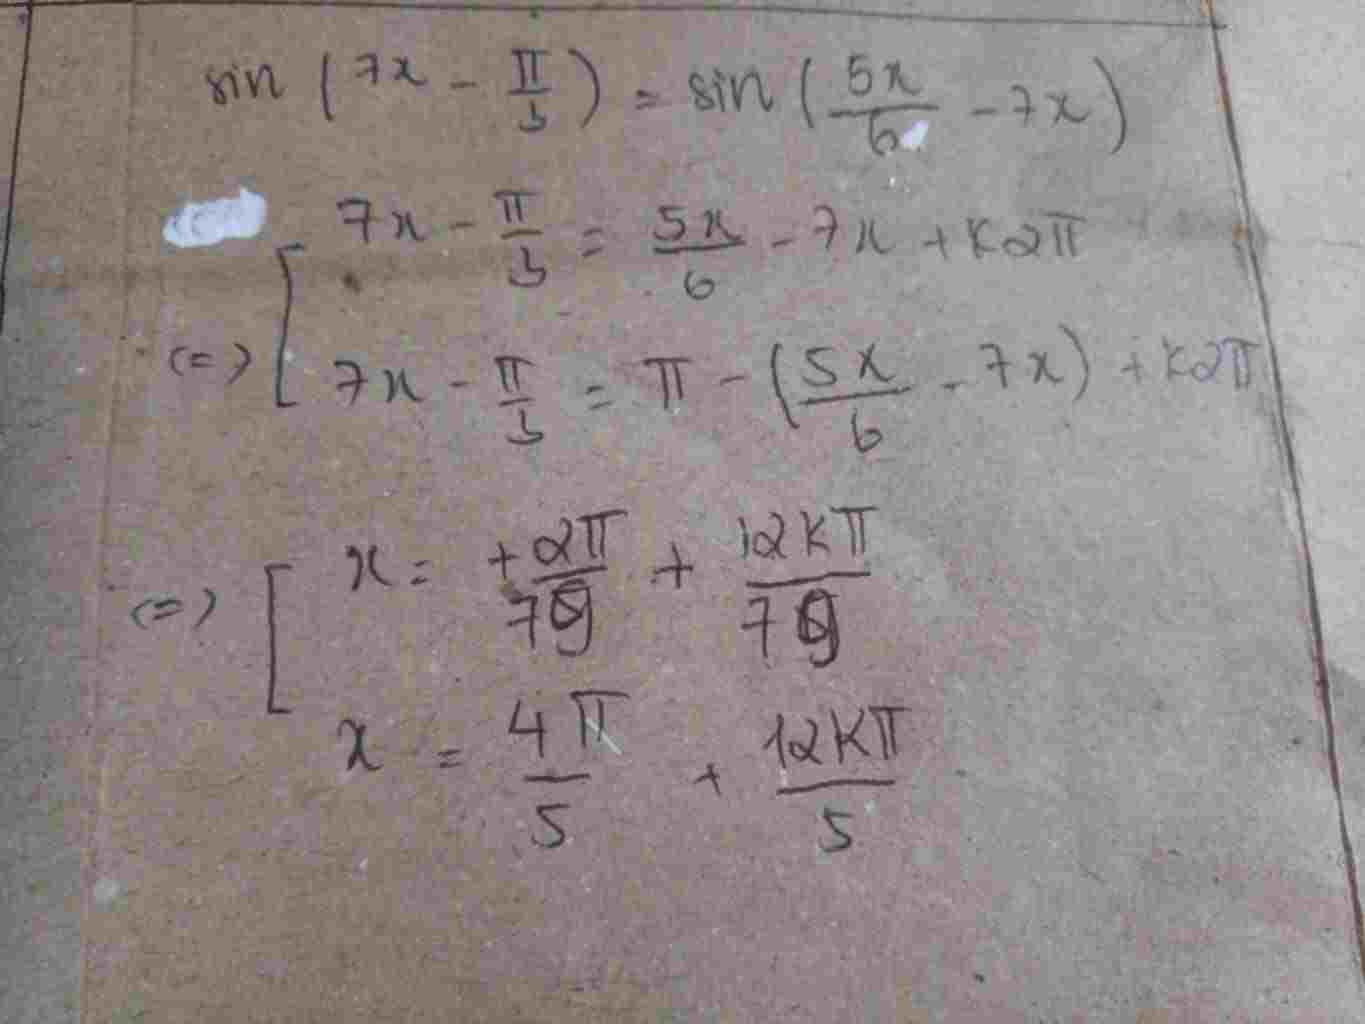 sin (7x - π/3) = sin (5x/6 - 7x)
7x - π/3 = 5x/6 - 7x + k2π
(=) [ 7x - π/3 = π - (5x/6 - 7x) + k2π
(=) [ x = +2π/79 + 12kπ/79
x = 4π/5 + 12kπ/5